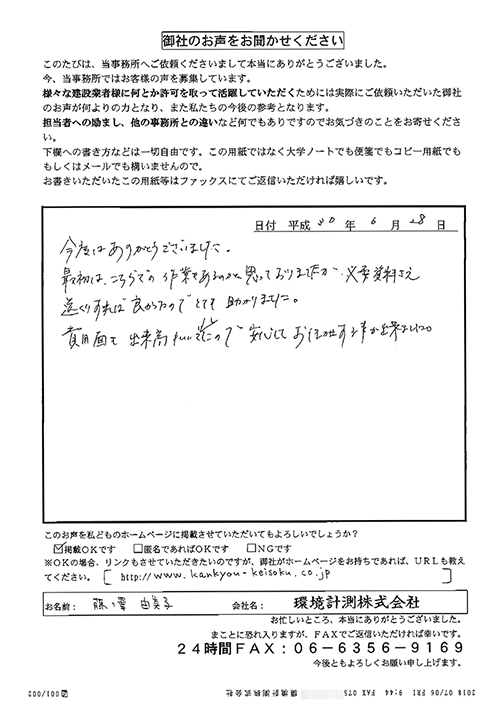 御社のお声をお聞かせください
このたびは、当事務所へご依頼くださいまして本当にありがとうございました。
今、当事務所ではお客様の声を募集しています。
様々な建設業者様に何とか許可を取って活躍していただくためには実際にご依頼いただいた御社
のお声が何よりの力となり、また私たちの今後の参考となります。
担当者への励まし、他の事務所との違いなど何でもありですのでお気づきのことをお寄せくださ
い。
下欄への書き方などは一切自由です。この用紙ではなく大学ノートでも便箋でもコピー用紙でも
もしくはメールでも構いませんので。
お書きいただいたこの用紙等はファックスにてご返信いただければ嬉しいです。
日付 平成 30 年 6 月 28 日
今度はありがとうございました。
最初は、こちらでの作業であるのかと思っておりましたが、必要資料さえ
送りすれば良かったのでとても助かりました。
費用面も出来高払いでしたので安心してお任せする事が出来ました
このお声を私どものホームページに掲載させていただいてもよろしいでしょうか？
☑掲載OKです □匿名であればOKです □NGです
※OKの場合、リンクもさせていただきたいのですが、御社がホームページをお持ちであれば、URLも教え
てください。[ http://www.kankyou-keisoku.co.jp ]
お名前： 藤ヶ澤 由美子 会社名： 環境計測株式会社
お忙しいところ、本当にありがとうございました。
まことに恐れ入りますが、FAXでご返信いただければ幸いです。
24時間FAX：06-6356-9169
今後ともよろしくお願い申し上げます。
2018 07/06 FRI 9:44 FAX 075 環境計測株式会社 001/002